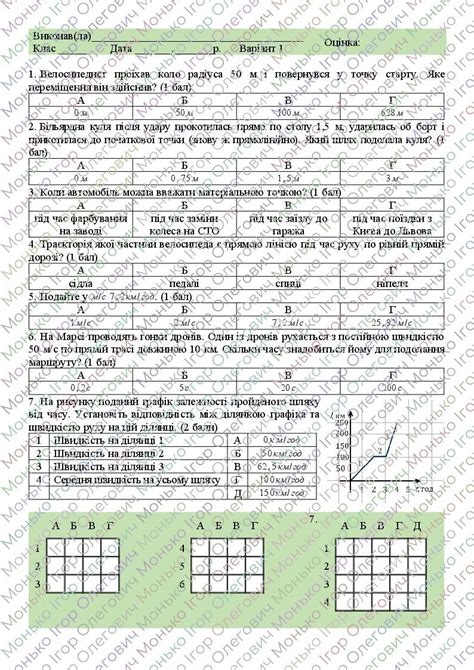 Виконав(ла)
Клас Дата р. Варіант 1 Оцінка:
1. Велосипедист проїхав коло радіуса 50 м і повернувся у точку старту. Яке
переміщення він здійснив? (1 бал)
А Б В Г
0 м 50 м 100 м 628 м
2. Більярдна куля після удару прокотилась прямо по столу 1,5 м, ударилась об борт і
прикотилася до початкової точки (знову ж прямолінійно). Який шлях подолала куля? (1
бал)
А Б В Г
0 м 0,75 м 1,5 м 3 м
3. Коли автомобіль можна вважати матеріальною точкою? (1 бал)
А Б В Г
під час фарбування під час заміни під час заїзду до під час поїздки з
на заводі колеса на СТО гаража Києва до Львова
4. Траєкторія якої частини велосипеда є прямою лінією під час руху по рівній прямій
дорозі? (1 бал)
А Б В Г
сідла педалі спиці ніпеля
5. Подайте у м/с 7,2 км/год. (1 бал)
А Б В Г
1 м/с 2 м/с 7,2 м/с 25,92 м/с
6. На Марсі проводять гонки дронів. Один із дронів рухається з постійною швидкістю
50 м/с по прямій трасі довжиною 10 км. Скільки часу знадобиться йому для подолання
маршруту? (1 бал)
А Б В Г
0,2 с 5 с 20 с 200 с
7. На рисунку поданий графік залежності пройденого шляху
від часу. Установіть відповідність між ділянкою графіка та
швидкістю руху на цій ділянці. (2 бали)
1 Швидкість на ділянці 1 А 0 км/год
2 Швидкість на ділянці 2 Б 50 км/год
3 Швидкість на ділянці 3 В 62,5 км/год
4 Середня швидкість на усьому шляху Г 100 км/год
Д 150 км/год
l, км
250
200
150
100
50
1 2 3
0 1 2 3 4 5 t, год
7.
А Б В Г А Б В Г А Б В Г Д
1 4 1
2 5 2
3 6 3
4
Монько Ігор Олегович